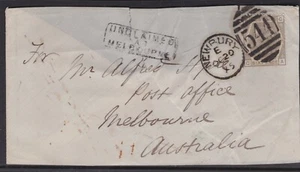 UNCLAIMED
MELBOURNE
NEWBURY
541
For Mr Alfred
Post Office
Melbourne
Australia